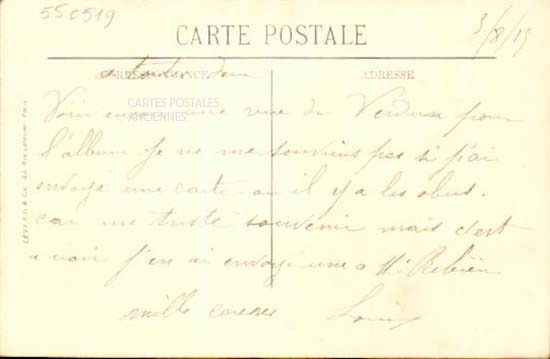 550519
3/8/15
CARTE POSTALE
CORRESPONDANCE
ADRESSE
a toutes deux
CARTES POSTALES
ANCIENNES
Voici encore une vue de Verdun pour
l'album je ne me souviens pas si j'ai
envoyé une carte ou il y a les obus.
car une triste souvenir mais c'est
a voir j'en ai envoyé une a Mr
mille caresses Louis